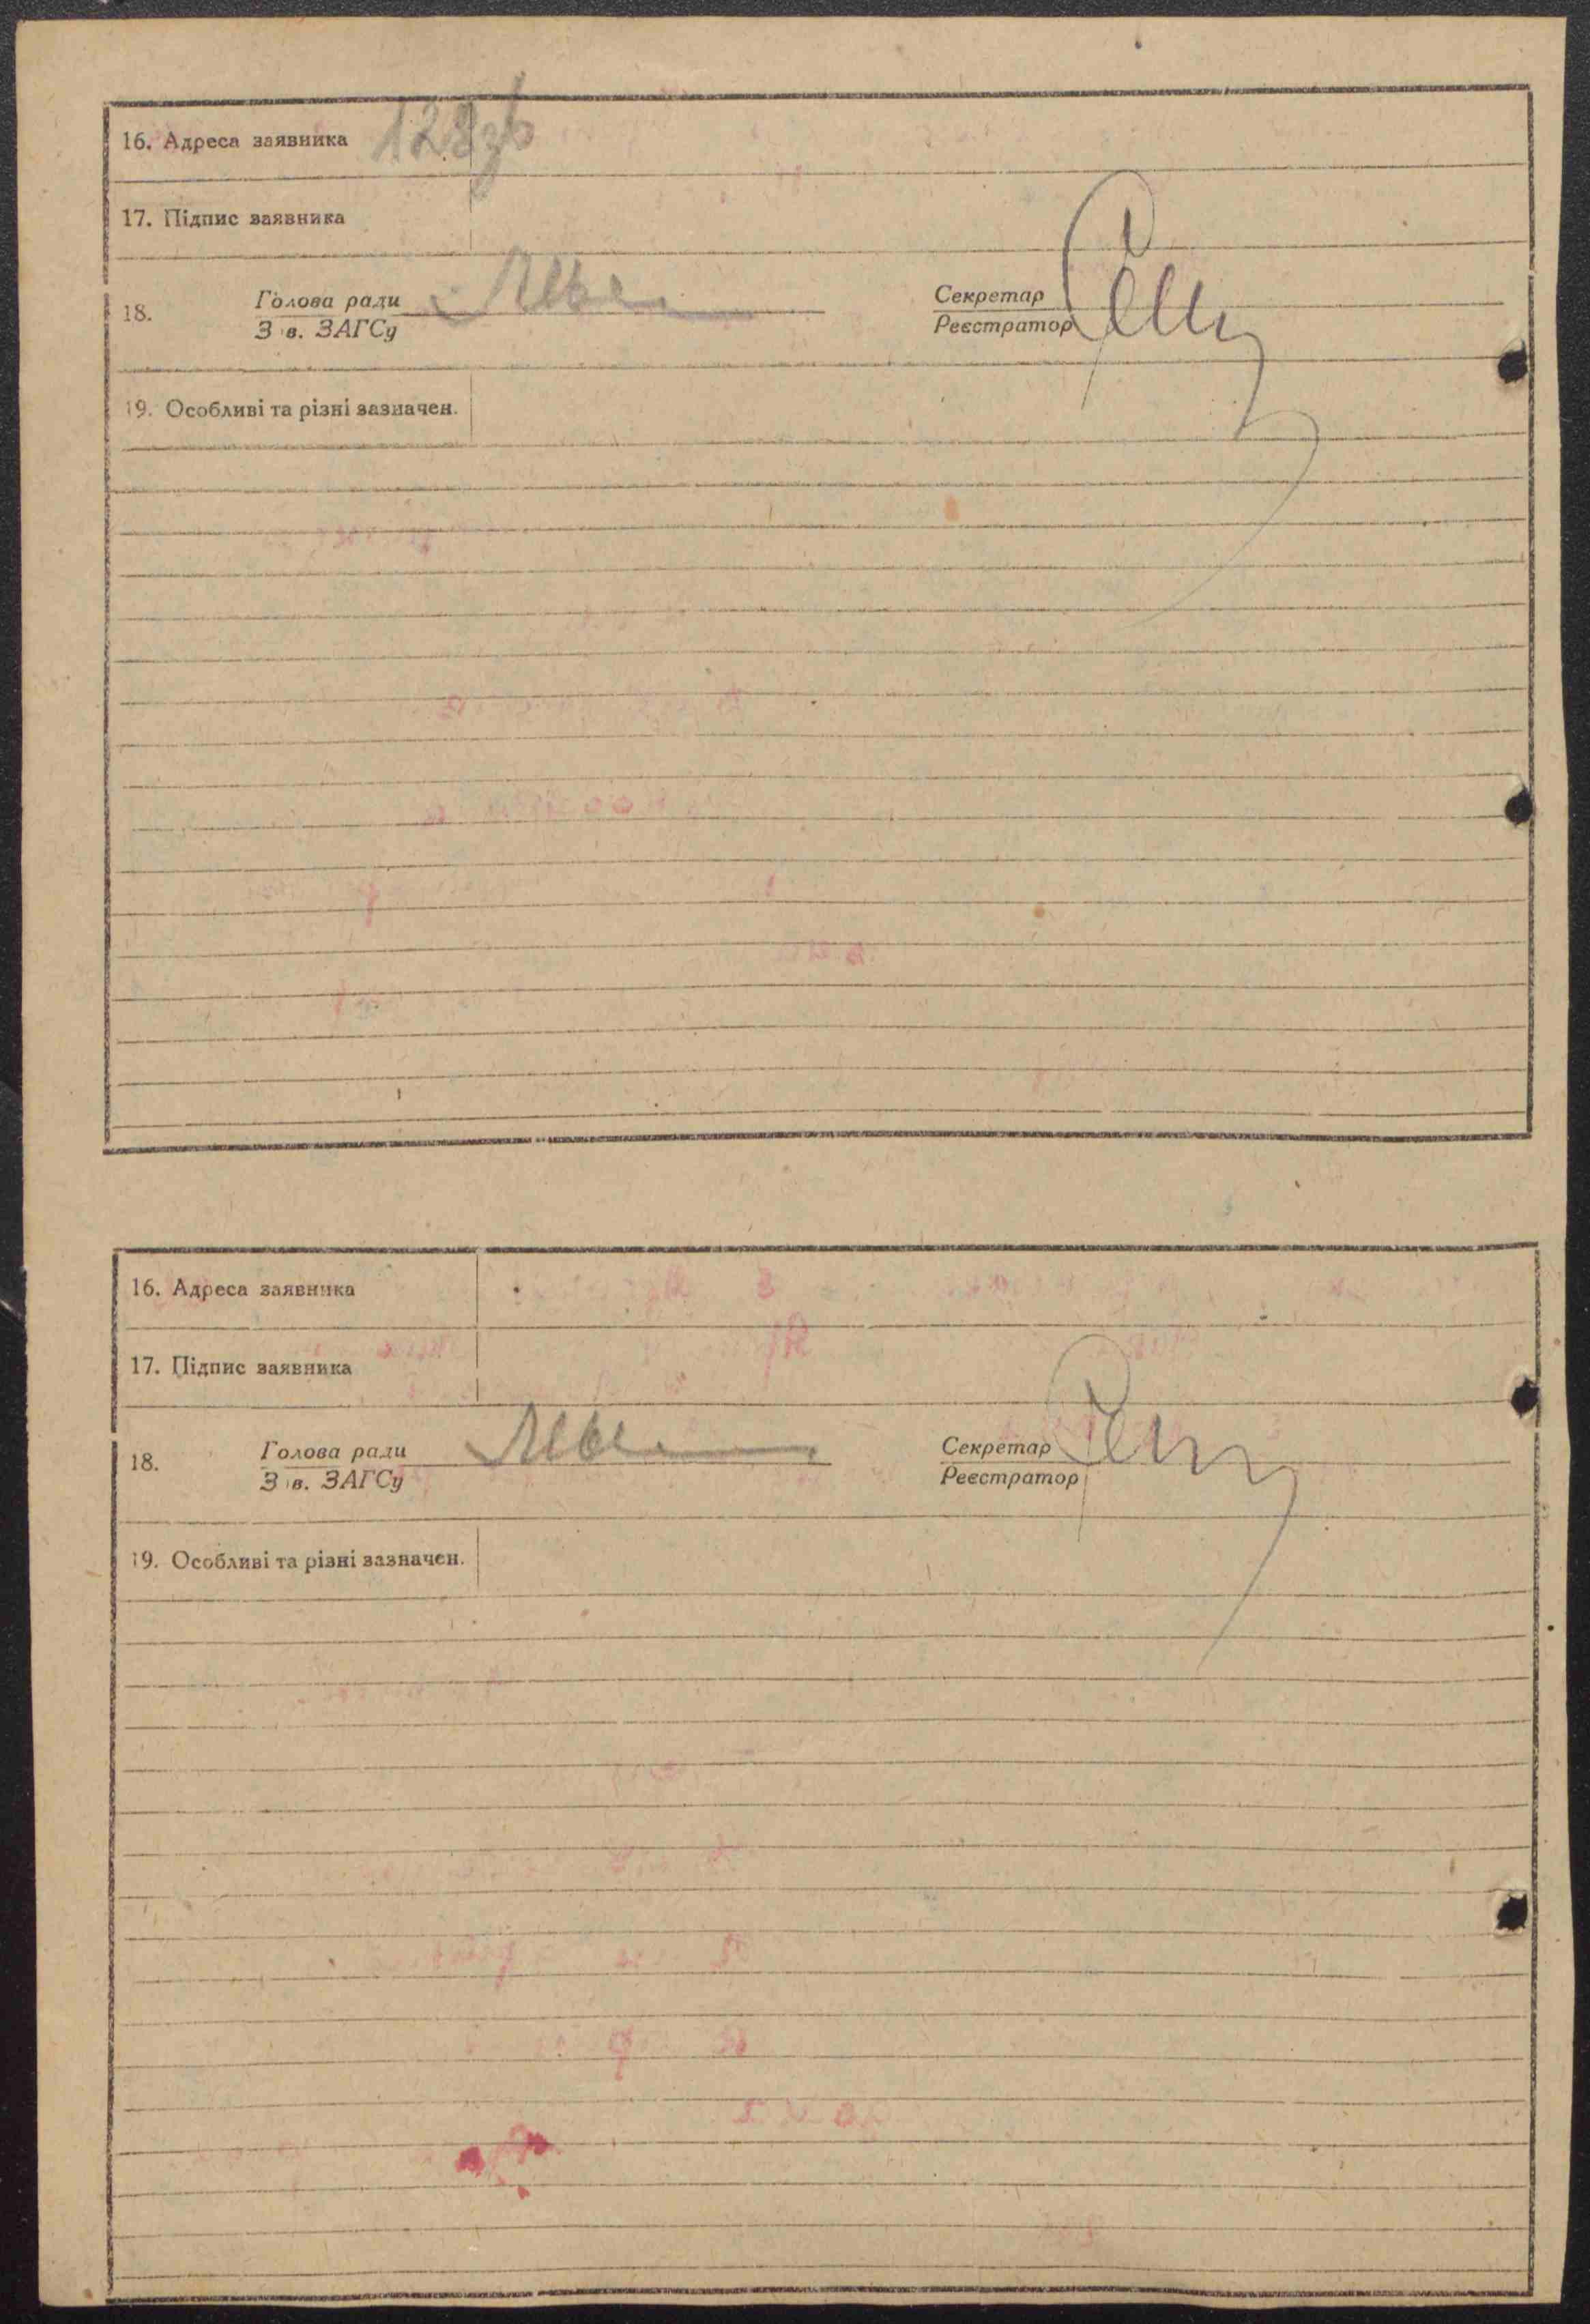 16. Адреса заявника 128зв
17. Підпис заявника
18. Голова ради Секретар
З в. ЗАГСу Реєстратор
19. Особливі та різні зазначен.
16. Адреса заявника
17. Підпис заявника
18. Голова ради Секретар
З в. ЗАГСу Реєстратор
19. Особливі та різні зазначен.